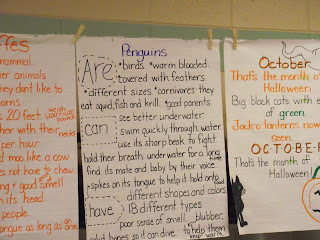 ffes
mammal.
her animals
they don't like to
orns
is 20 feet.
weigh
ther with their necks
per hour
d moo like a cow
es not have to chew
ng + good smell
n its head
people.
tongue as long as an arm
Penguins
Are
*birds *warm blooded
*covered with feathers.
*different sizes *carnivores they
eat squid, fish and krill. *good parents
can
see better underwater
swim quickly through water.
use its sharp beak to fight.
hold their breath underwater for a long time
find its mate and baby by their voice
*spikes on its tongue to help it hold onto food
have
different shapes and colors
18 different types.
poor sense of smell blubber,
solid bones, so it can dive to help them keep warm
October
That's the month of
Halloween.
Big black cats with e
of green.
Jack-o-lanterns now
seen.
O-C-T-O-B-E-R
That's the month of
Halloween!